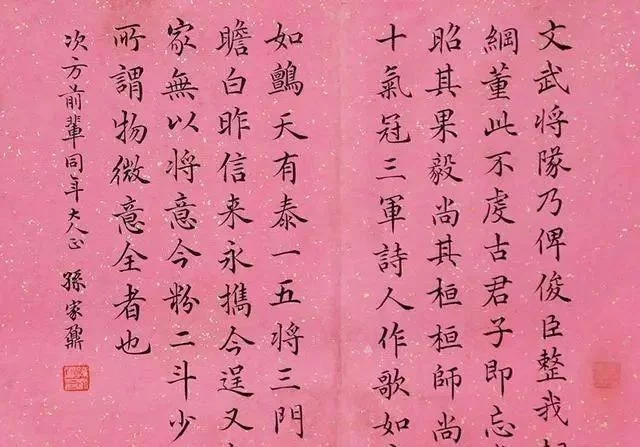 文武将隊乃俾俊臣整我
綱董此不虔古君子即忘
昭其果毅尚其桓桓師尚
十氣冠三軍詩人作歌如
如鸇天有泰一五将三門
瞻白昨信来永攜今逞又
家無以将意今粉二斗少
所謂物微意全者也
次方前輩同年大人正 孫家鼐